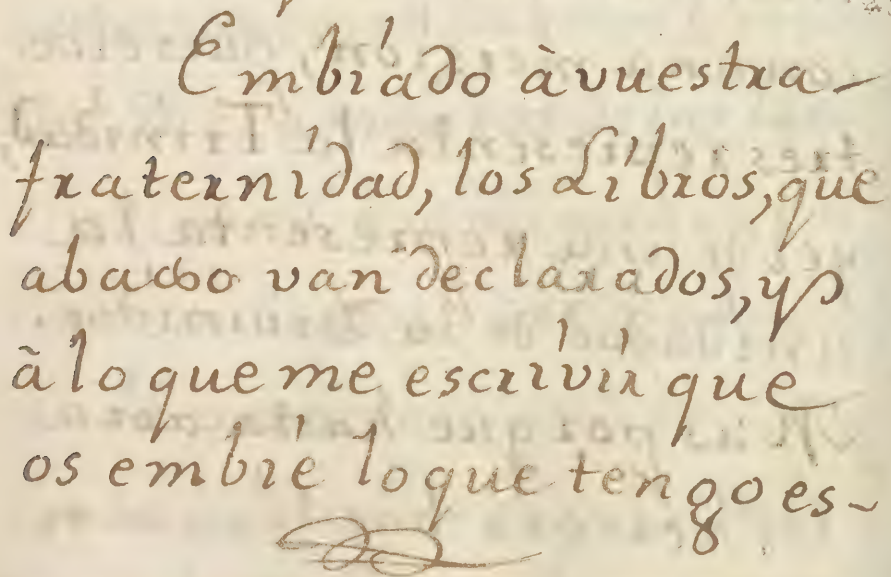 Embiado à vuestra-
fraternidad, los Libros, que
abaxo van declarados, y
à lo que me escrivir que
os embìe lo que tengo es-